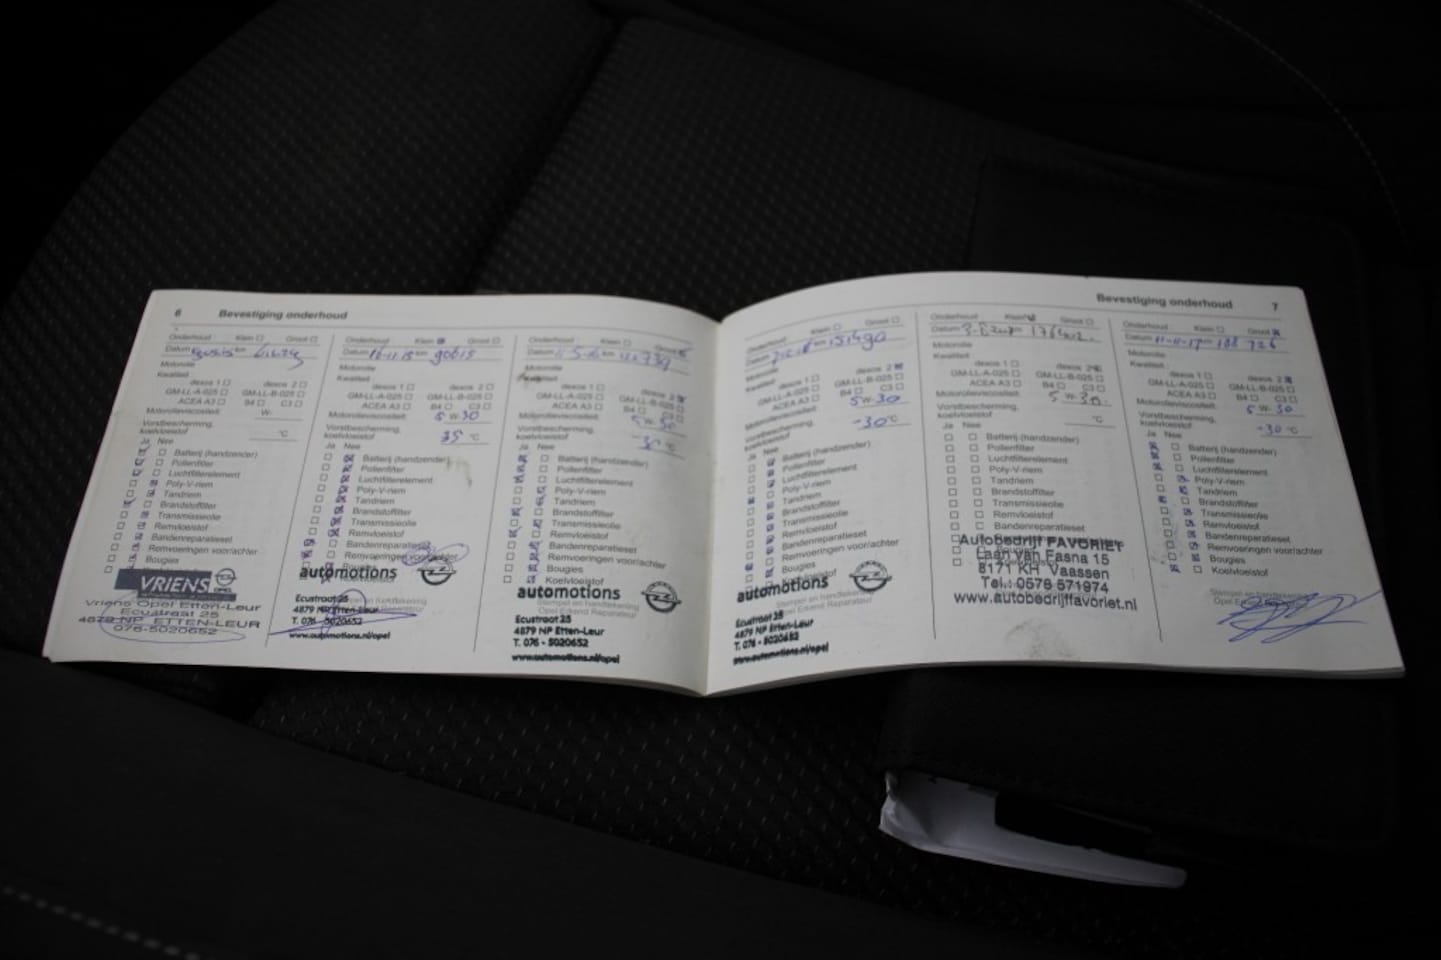 6 Bevestiging onderhoud
Onderhoud Klein Groot
Datum km
Motorolie
Kwaliteit :
dexos 1 dexos 2
GM-LL-A-025 GM-LL-B-025
ACEA A3 B4 C3
Motorolieviscositeit: W-
Vorstbescherming,
koelvloeistof °C
Ja Nee
Batterij (handzender)
Pollenfilter
Luchtfilterelement
Poly-V-riem
Tandriem
Brandstoffilter
Transmissieolie
Remvloeistof
Bandenreparatieset
Remvoeringen voor/achter
Bougies
VRIENS OPEL
Vriens Opel Etten-Leur
Ecustraat 25
4879 NP ETTEN-LEUR
076-5020652
Onderhoud Klein Groot
Datum 16-11-15 km 90615
Motorolie
Kwaliteit :
dexos 1 dexos 2
GM-LL-A-025 GM-LL-B-025
ACEA A3 B4 C3
Motorolieviscositeit: 5 W-30
Vorstbescherming,
koelvloeistof 35 °C
Ja Nee
Batterij (handzender)
Pollenfilter
Luchtfilterelement
Poly-V-riem
Tandriem
Brandstoffilter
Transmissieolie
Remvloeistof
Bandenreparatieset
Remvoeringen voor/achter
automotions
Ecustraat 25
4879 NP Etten-Leur
T. 076 - 5020652
www.automotions.nl/opel
Onderhoud Klein Groot
Datum km
Motorolie
Kwaliteit :
dexos 1 dexos 2
GM-LL-A-025 GM-LL-B-025
ACEA A3 B4 C3
Motorolieviscositeit: 5 W-30
Vorstbescherming,
koelvloeistof °C
Ja Nee
Batterij (handzender)
Pollenfilter
Luchtfilterelement
Poly-V-riem
Tandriem
Brandstoffilter
Transmissieolie
Remvloeistof
Bandenreparatieset
Remvoeringen voor/achter
Bougies
Koelvloeistof
automotions
Stempel en handtekening
Opel Erkend Reparateur
Ecustraat 25
4879 NP Etten-Leur
T. 076 - 5020652
www.automotions.nl/opel
Bevestiging onderhoud 7
Onderhoud Klein Groot
Datum km 151490
Motorolie
Kwaliteit :
dexos 1 dexos 2
GM-LL-A-025 GM-LL-B-025
ACEA A3 B4 C3
Motorolieviscositeit: 5 W-30
Vorstbescherming,
koelvloeistof -30 °C
Ja Nee
Batterij (handzender)
Pollenfilter
Luchtfilterelement
Poly-V-riem
Tandriem
Brandstoffilter
Transmissieolie
Remvloeistof
Bandenreparatieset
Remvoeringen voor/achter
Bougies
Koelvloeistof
automotions
Stempel en handtekening
Opel Erkend Reparateur
Ecustraat 25
4879 NP Etten-Leur
T. 076 - 5020652
www.automotions.nl/opel
Onderhoud Klein Groot
Datum km
Motorolie
Kwaliteit :
dexos 1 dexos 2
GM-LL-A-025 GM-LL-B-025
ACEA A3 B4 C3
Motorolieviscositeit: 5 W-30
Vorstbescherming,
koelvloeistof °C
Ja Nee
Batterij (handzender)
Pollenfilter
Luchtfilterelement
Poly-V-riem
Tandriem
Brandstoffilter
Transmissieolie
Remvloeistof
Bandenreparatieset
Autobedrijf FAVORIET
Laan van Fasna 15
8171 KH Vaassen
Tel.: 0578 571974
www.autobedrijffavoriet.nl
Onderhoud Klein Groot
Datum 11-11-17 km 188 726
Motorolie
Kwaliteit :
dexos 1 dexos 2
GM-LL-A-025 GM-LL-B-025
ACEA A3 B4 C3
Motorolieviscositeit: 5 W-30
Vorstbescherming,
koelvloeistof -30 °C
Ja Nee
Batterij (handzender)
Pollenfilter
Luchtfilterelement
Poly-V-riem
Tandriem
Brandstoffilter
Transmissieolie
Remvloeistof
Bandenreparatieset
Remvoeringen voor/achter
Bougies
Koelvloeistof
Stempel en handtekening
Opel Erkend Reparateur